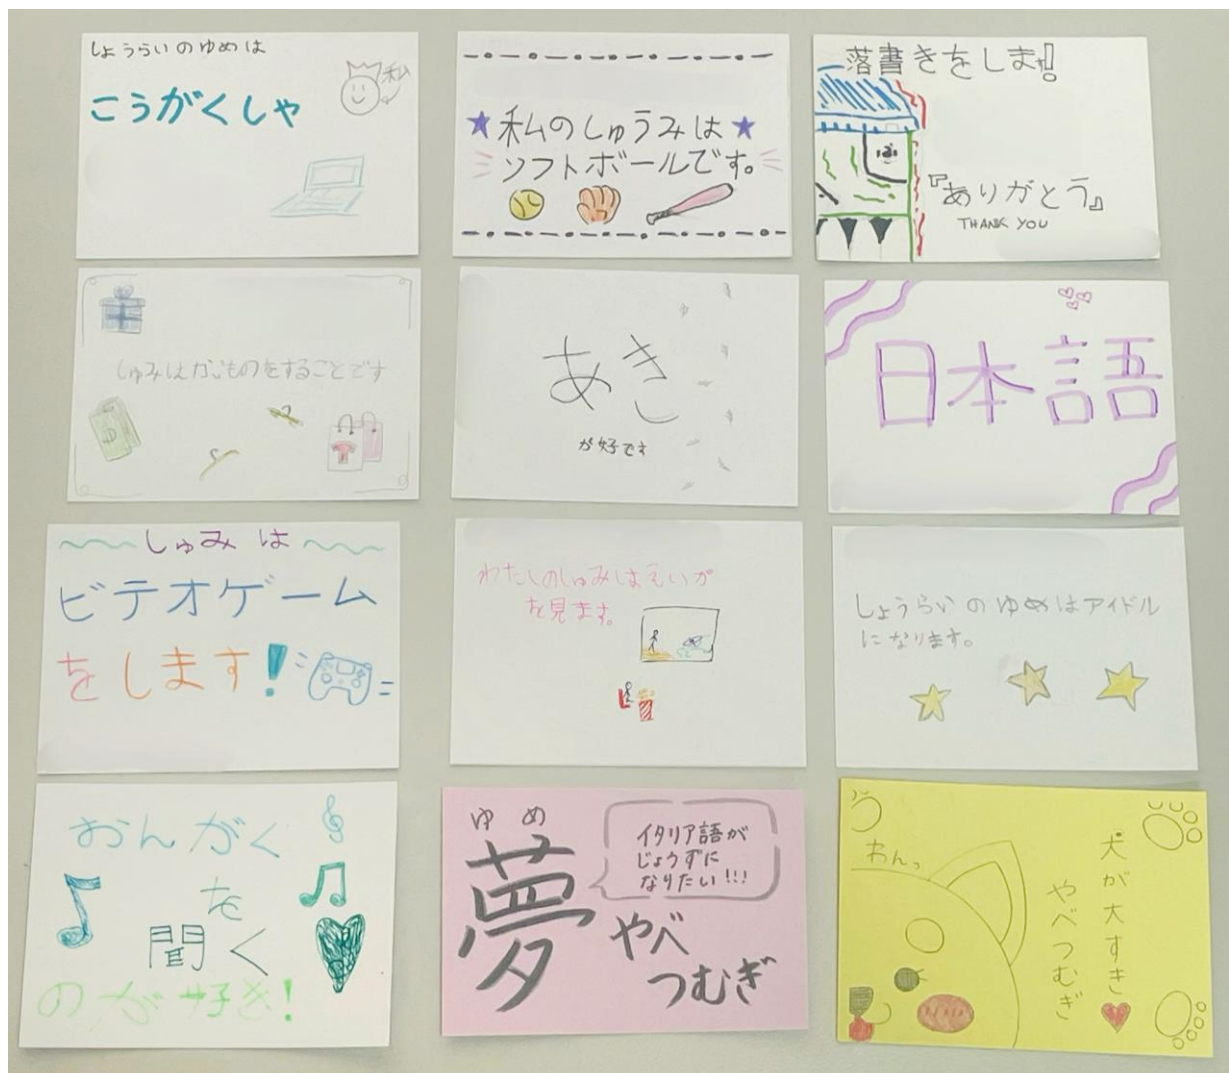 しょうらいのゆめは
こうがくしゃ
私
★私のしゅうみは★
ソフトボールです。
落書きをします!
『ありがとう』
THANK YOU
しゅみはかいものをすることです
あき
が好です
日本語
しゅみ は
ビテオゲーム
をします!
わたしのしゅみはえいが
を見ます。
しょうらいのゆめはアイドル
になります。
おんがく
を
聞く
のが好き!
ゆめ
夢
イタリア語が
じょうずに
なりたい!!!
やべ
つむぎ
わんっ
犬が大すき♥
やべつむぎ